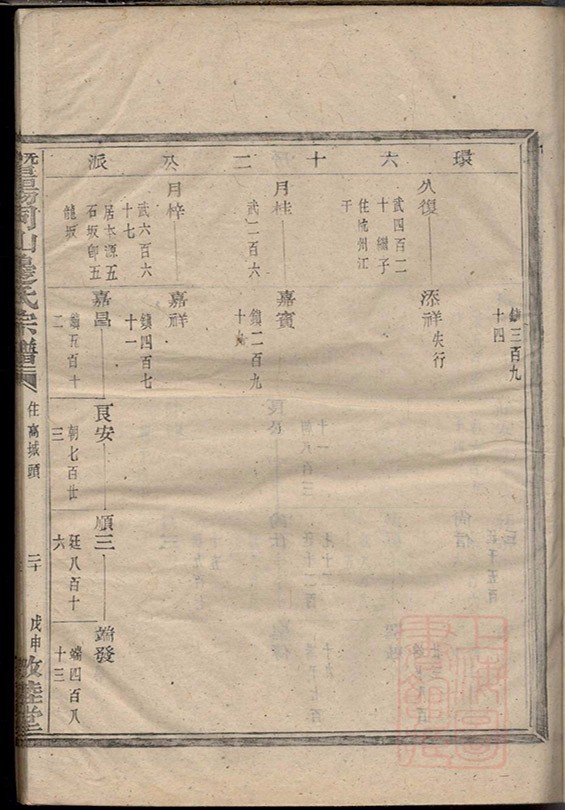 環六十二公派
鎮三百九
十四
久復
添祥失行
武四百二
十繼子
住杭州江
干
月桂
嘉賓
武二百六
鎮二百九
十九
月梓
嘉祥
武六百六
十七
鎮四百七
十一
居本源五
石坂郎五
龍坂
嘉昌
良安
順三
端發
鎮五百十
二
朝七百廿
三
廷八百十
六
端四百八
十三
暨陽同山邊氏宗譜
住高城頭
二十
戊申
敦睦堂